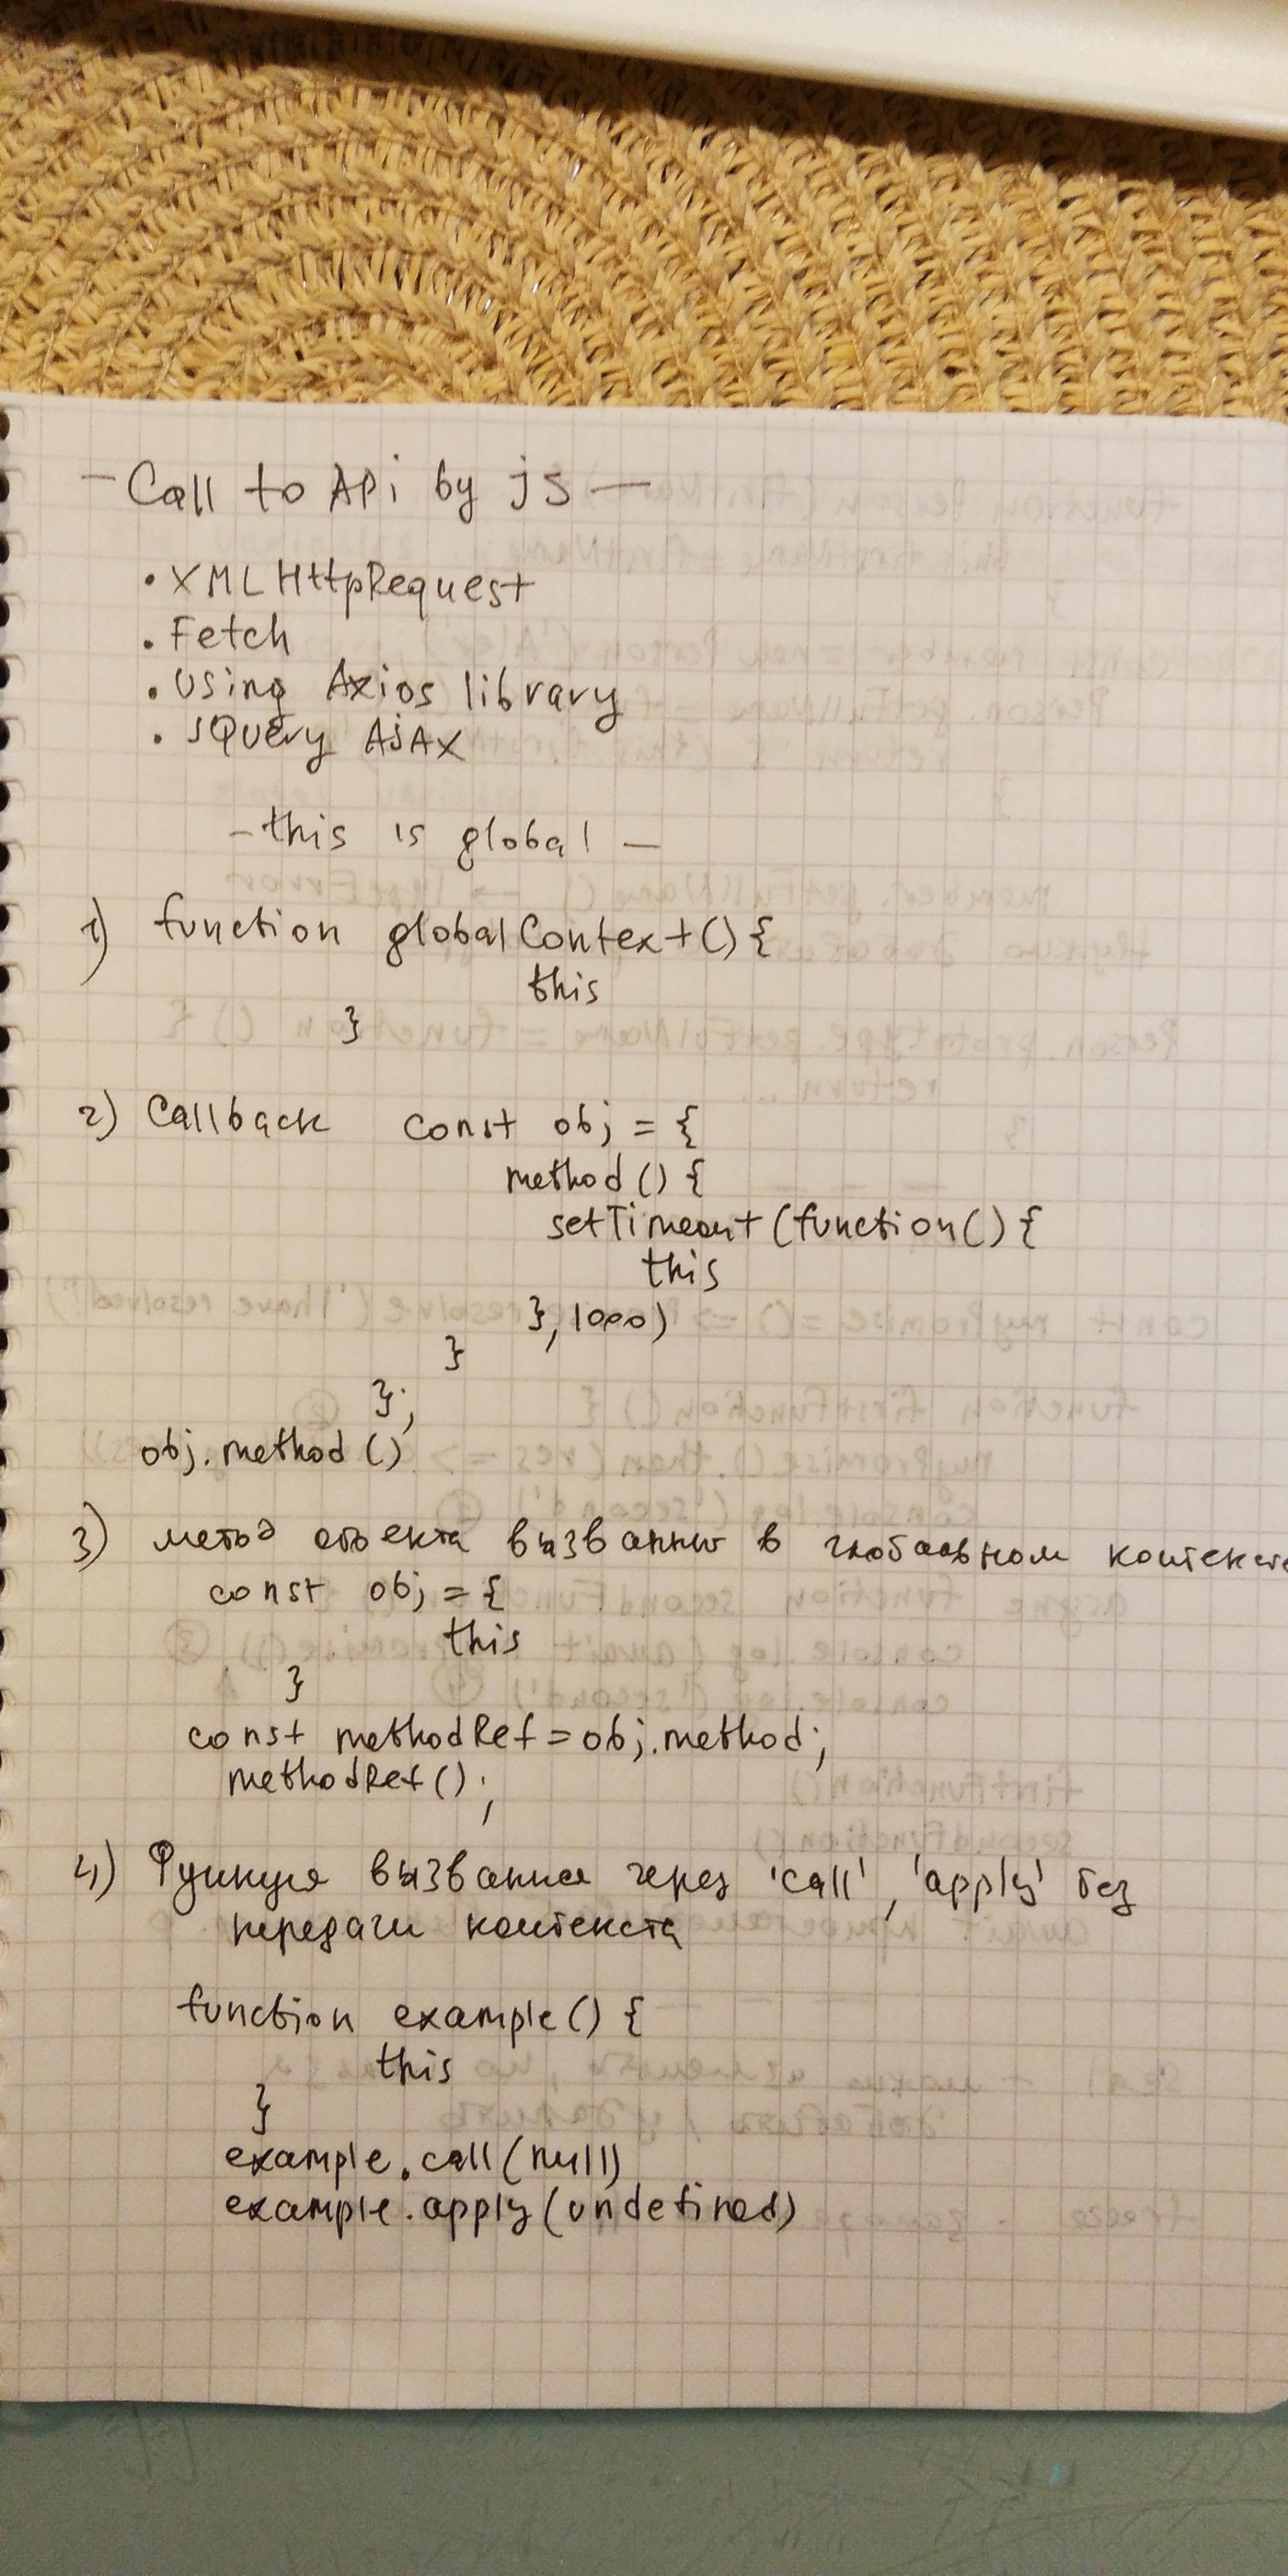 — Call to APi by js —
• XMLHttpRequest
• Fetch
• Using Axios library
• JQuery AjAX
— this is global —
1) function globalContext() {
this
}
2) Callback const obj = {
method () {
setTimeout (function() {
this
}, 1000)
}
};
obj.method ()
3) метод объекта вызванный в глобальном контексте
const obj = {
this
}
const methodRef = obj.method;
methodRef();
4) Функция вызванная через 'call', 'apply' без
передачи контекста
function example() {
this
}
example.call(null)
example.apply(undefined)